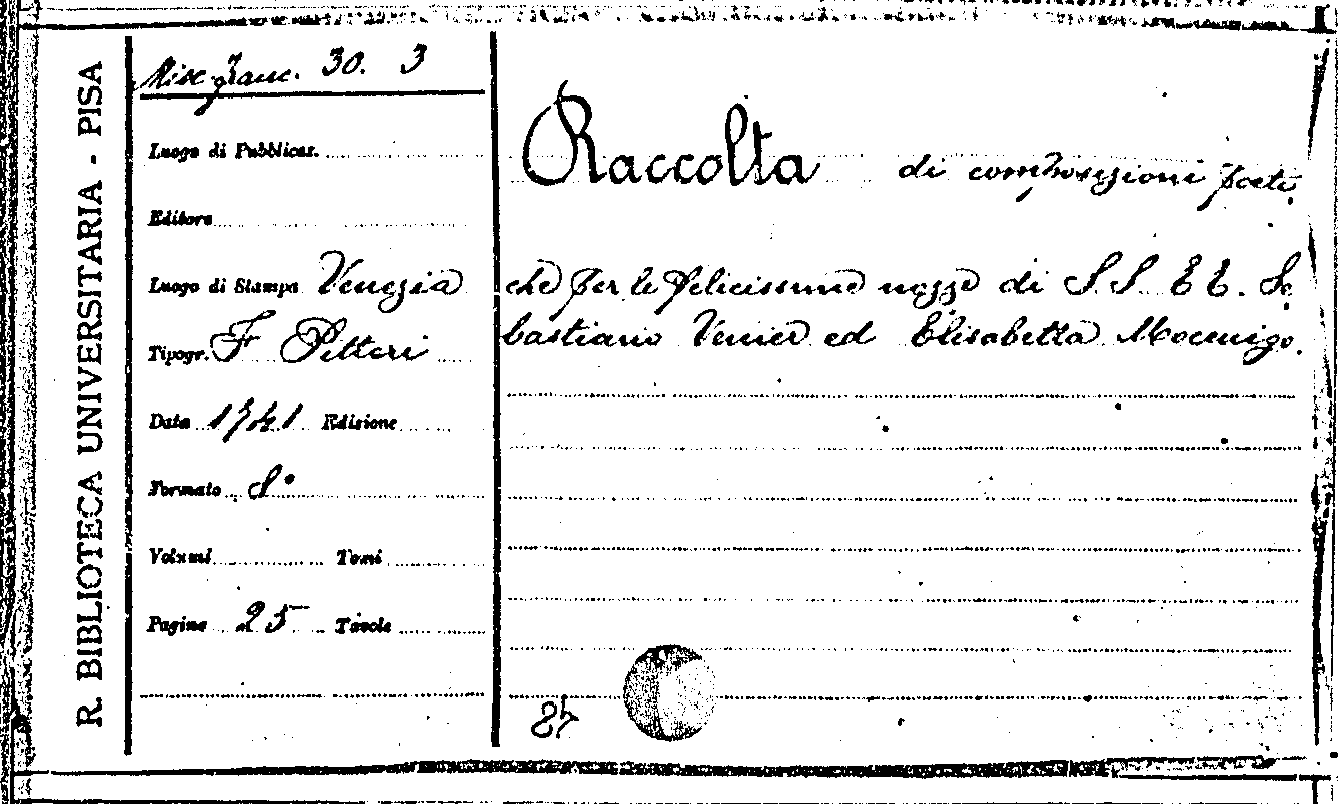 R. BIBLIOTECA UNIVERSITARIA - PISA
Misc. Zanc. 30. 3
Luogo di Pubblicaz.
Editore
Luogo di Stampa Venezia
Tipogr. F Pitteri
Data 1741 Edizione
Formato 8°
Volumi Tomi
Pagine 25 Tavole
Raccolta di composizioni poeti
che per le felicissime nozze di S.S. E E. Se
bastiano Venier ed Elisabetta Mocenigo.
87